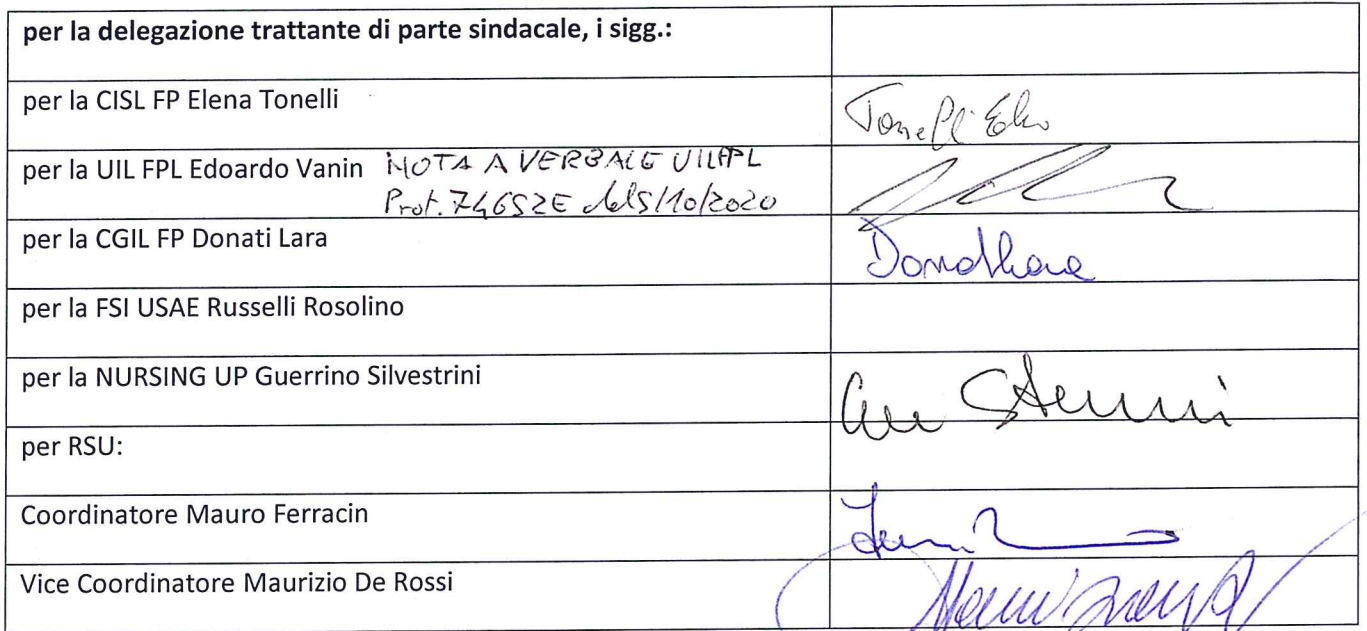 per la delegazione trattante di parte sindacale, i sigg.:
per la CISL FP Elena Tonelli
Tonelli Elena
per la UIL FPL Edoardo Vanin NOTA A VERBALE UILFPL
Prot. 74652E del 5/10/2020
per la CGIL FP Donati Lara
Donati Lara
per la FSI USAE Russelli Rosolino
per la NURSING UP Guerrino Silvestrini
per RSU:
Coordinatore Mauro Ferracin
Vice Coordinatore Maurizio De Rossi